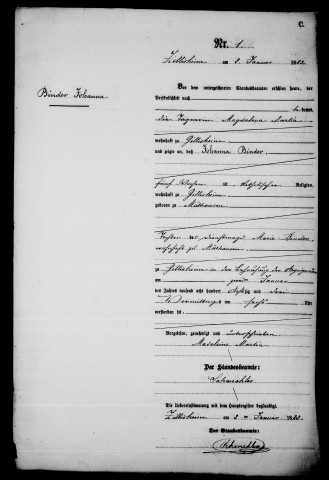 C.
Nr. 1.
Zillisheim am 3. Januar 1882.
Binder Johanna
Vor dem unterzeichneten Standesbeamten erschien heute, der
Persönlichkeit nach
kannt,
die Magdalena Martin
wohnhaft zu Zillisheim
und zeigte an, daß Johanna Binder,
fünf Wochen alt, katholischer Religion,
wohnhaft zu Zillisheim
geboren zu Mülhausen
Tochter der Dienstmagd Marie Binder
wohnhaft zu Mülhausen
zu Zillisheim in der Behausung der
am zwei Januar
des Jahres tausend acht hundert achtzig und
Vormittags um sechs Uhr
verstorben sei
Vorgelesen, genehmigt und unterschrieben
Madeleine Martin
Der Standesbeamte:
Die Uebereinstimmung mit dem Hauptregister beglaubigt.
Zillisheim am 3ten Januar 1882.
Der Standesbeamte: